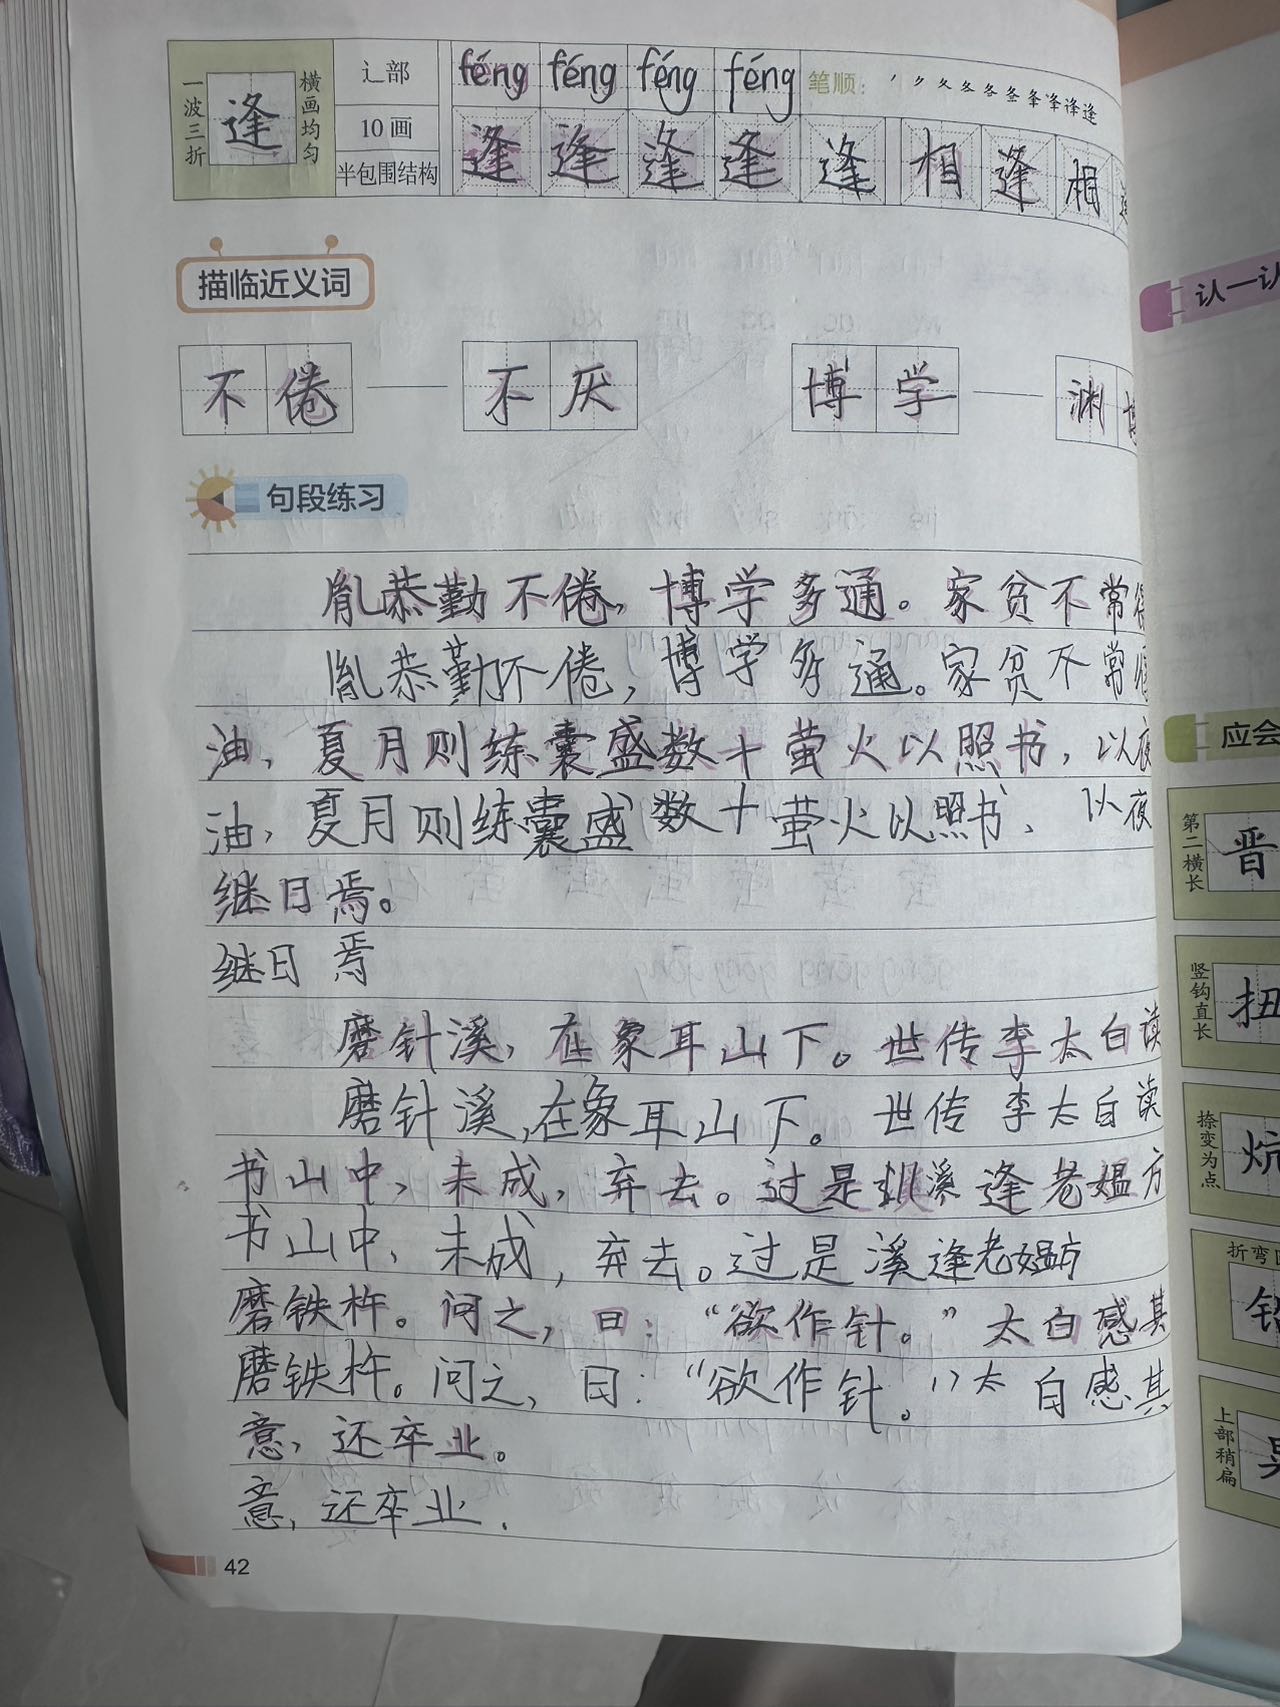 一波三折 逢 横画均匀
辶部 féng féng féng féng 笔顺：
10画
半包围结构 逢 逢 逢 逢 逢 相 逢 相
描临近义词
不倦 不厌 博学 渊博
句段练习
胤恭勤不倦，博学多通。家贫不常得
胤恭勤不倦，博学多通。家贫不常
油，夏月则练囊盛数十萤火以照书，以夜
油，夏月则练囊盛数十萤火以照书，以夜
继日焉。
继日焉
磨针溪，在象耳山下。世传李太白读
磨针溪，在象耳山下。世传李太白读
书山中，未成，弃去。过是溪逢老媪方
书山中，未成，弃去。过是溪逢老媪方
磨铁杵。问之，曰：“欲作针。”太白感其
磨铁杵。问之，曰：“欲作针。”太白感其
意，还卒业。
意，还卒业.
42
认一认
应会
第二横长 晋
竖钩直长 扭
捺变为点 炕
折弯
上部稍扁